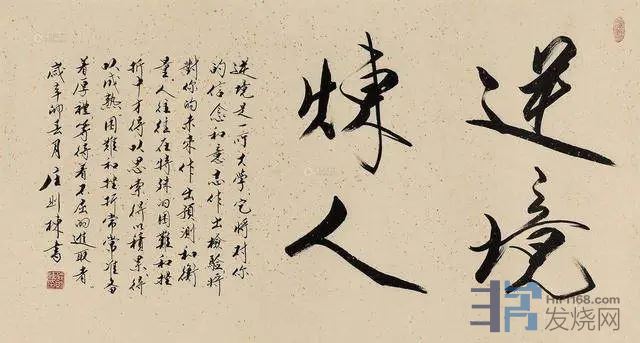 逆境
煉人
逆境是一所大學它將對你
的信念和意志作出檢驗將
對你的未來作出預測和衡
量人往往在特殊的困難和挫
折中才得以思索得以積累得
以成熟困難和挫折常常准备
着厚禮等待着不屈的進取者
歲辛卯春月庄則棟書
HIFI168.com
发烧网